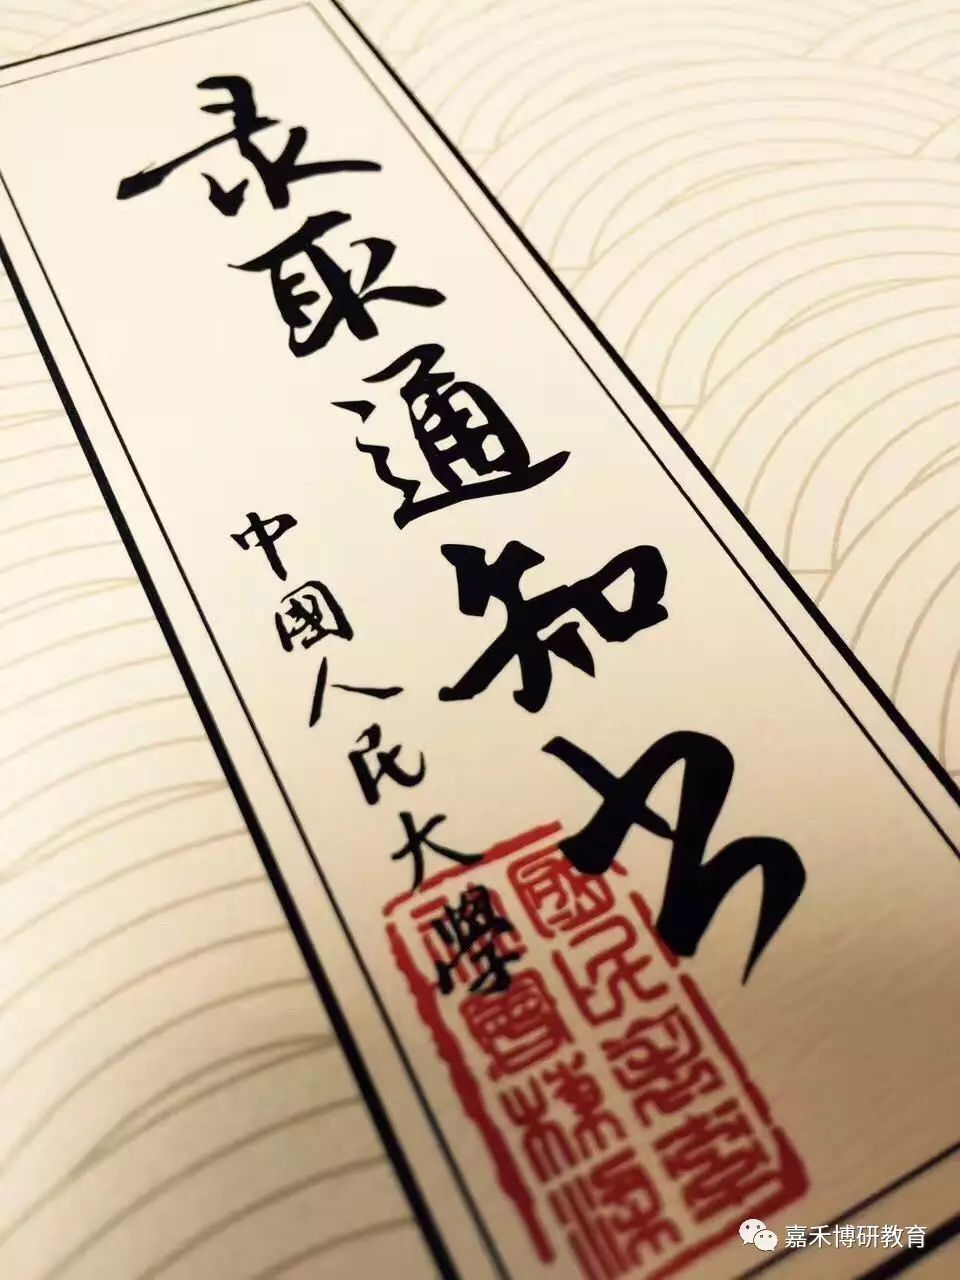 录取通知书
中國人民大學
嘉禾博研教育